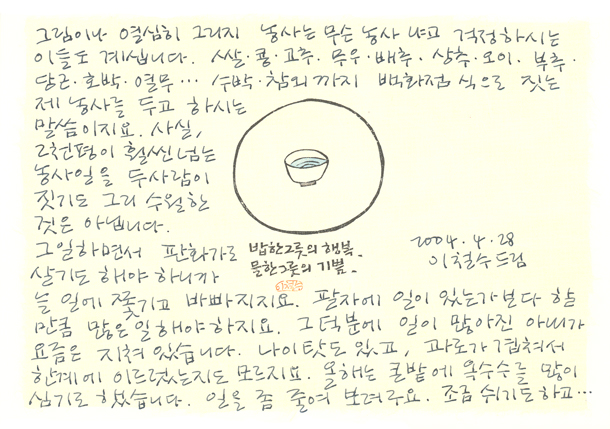 그림이나 열심히 그리지 농사는 무슨 농사냐고 걱정하시는
이들도 계십니다. 쌀·콩·고추·무우·배추·상추·오이·부추·
당근·호박·열무··· 수박·참외까지 백화점 식으로 짓는
제 농사를 두고 하시는
말씀이지요. 사실,
2천평이 훨씬 넘는
농사일을 두사람이
짓기도 그리 수월한
것은 아닙니다.
그일하면서 판화가로
살기도 해야 하니까
늘 일에 쫓기고 바빠지지요. 팔자에 일이 있는가보다 할
만큼 많은 일 해야 하지요. 그 덕분에 일이 많아진 아내가
요즘은 지쳐 있습니다. 나이 탓도 있고, 과로가 겹쳐서
한계에 이르렀는지도 모르지요. 올해는 콩밭에 옥수수를 많이
심기로 했습니다. 일을 좀 줄여 보려구요. 조금 쉬기도 하고···
밥 한그릇의 행복.
물 한그릇의 기쁨.
2004. 4. 28
이철수 드림